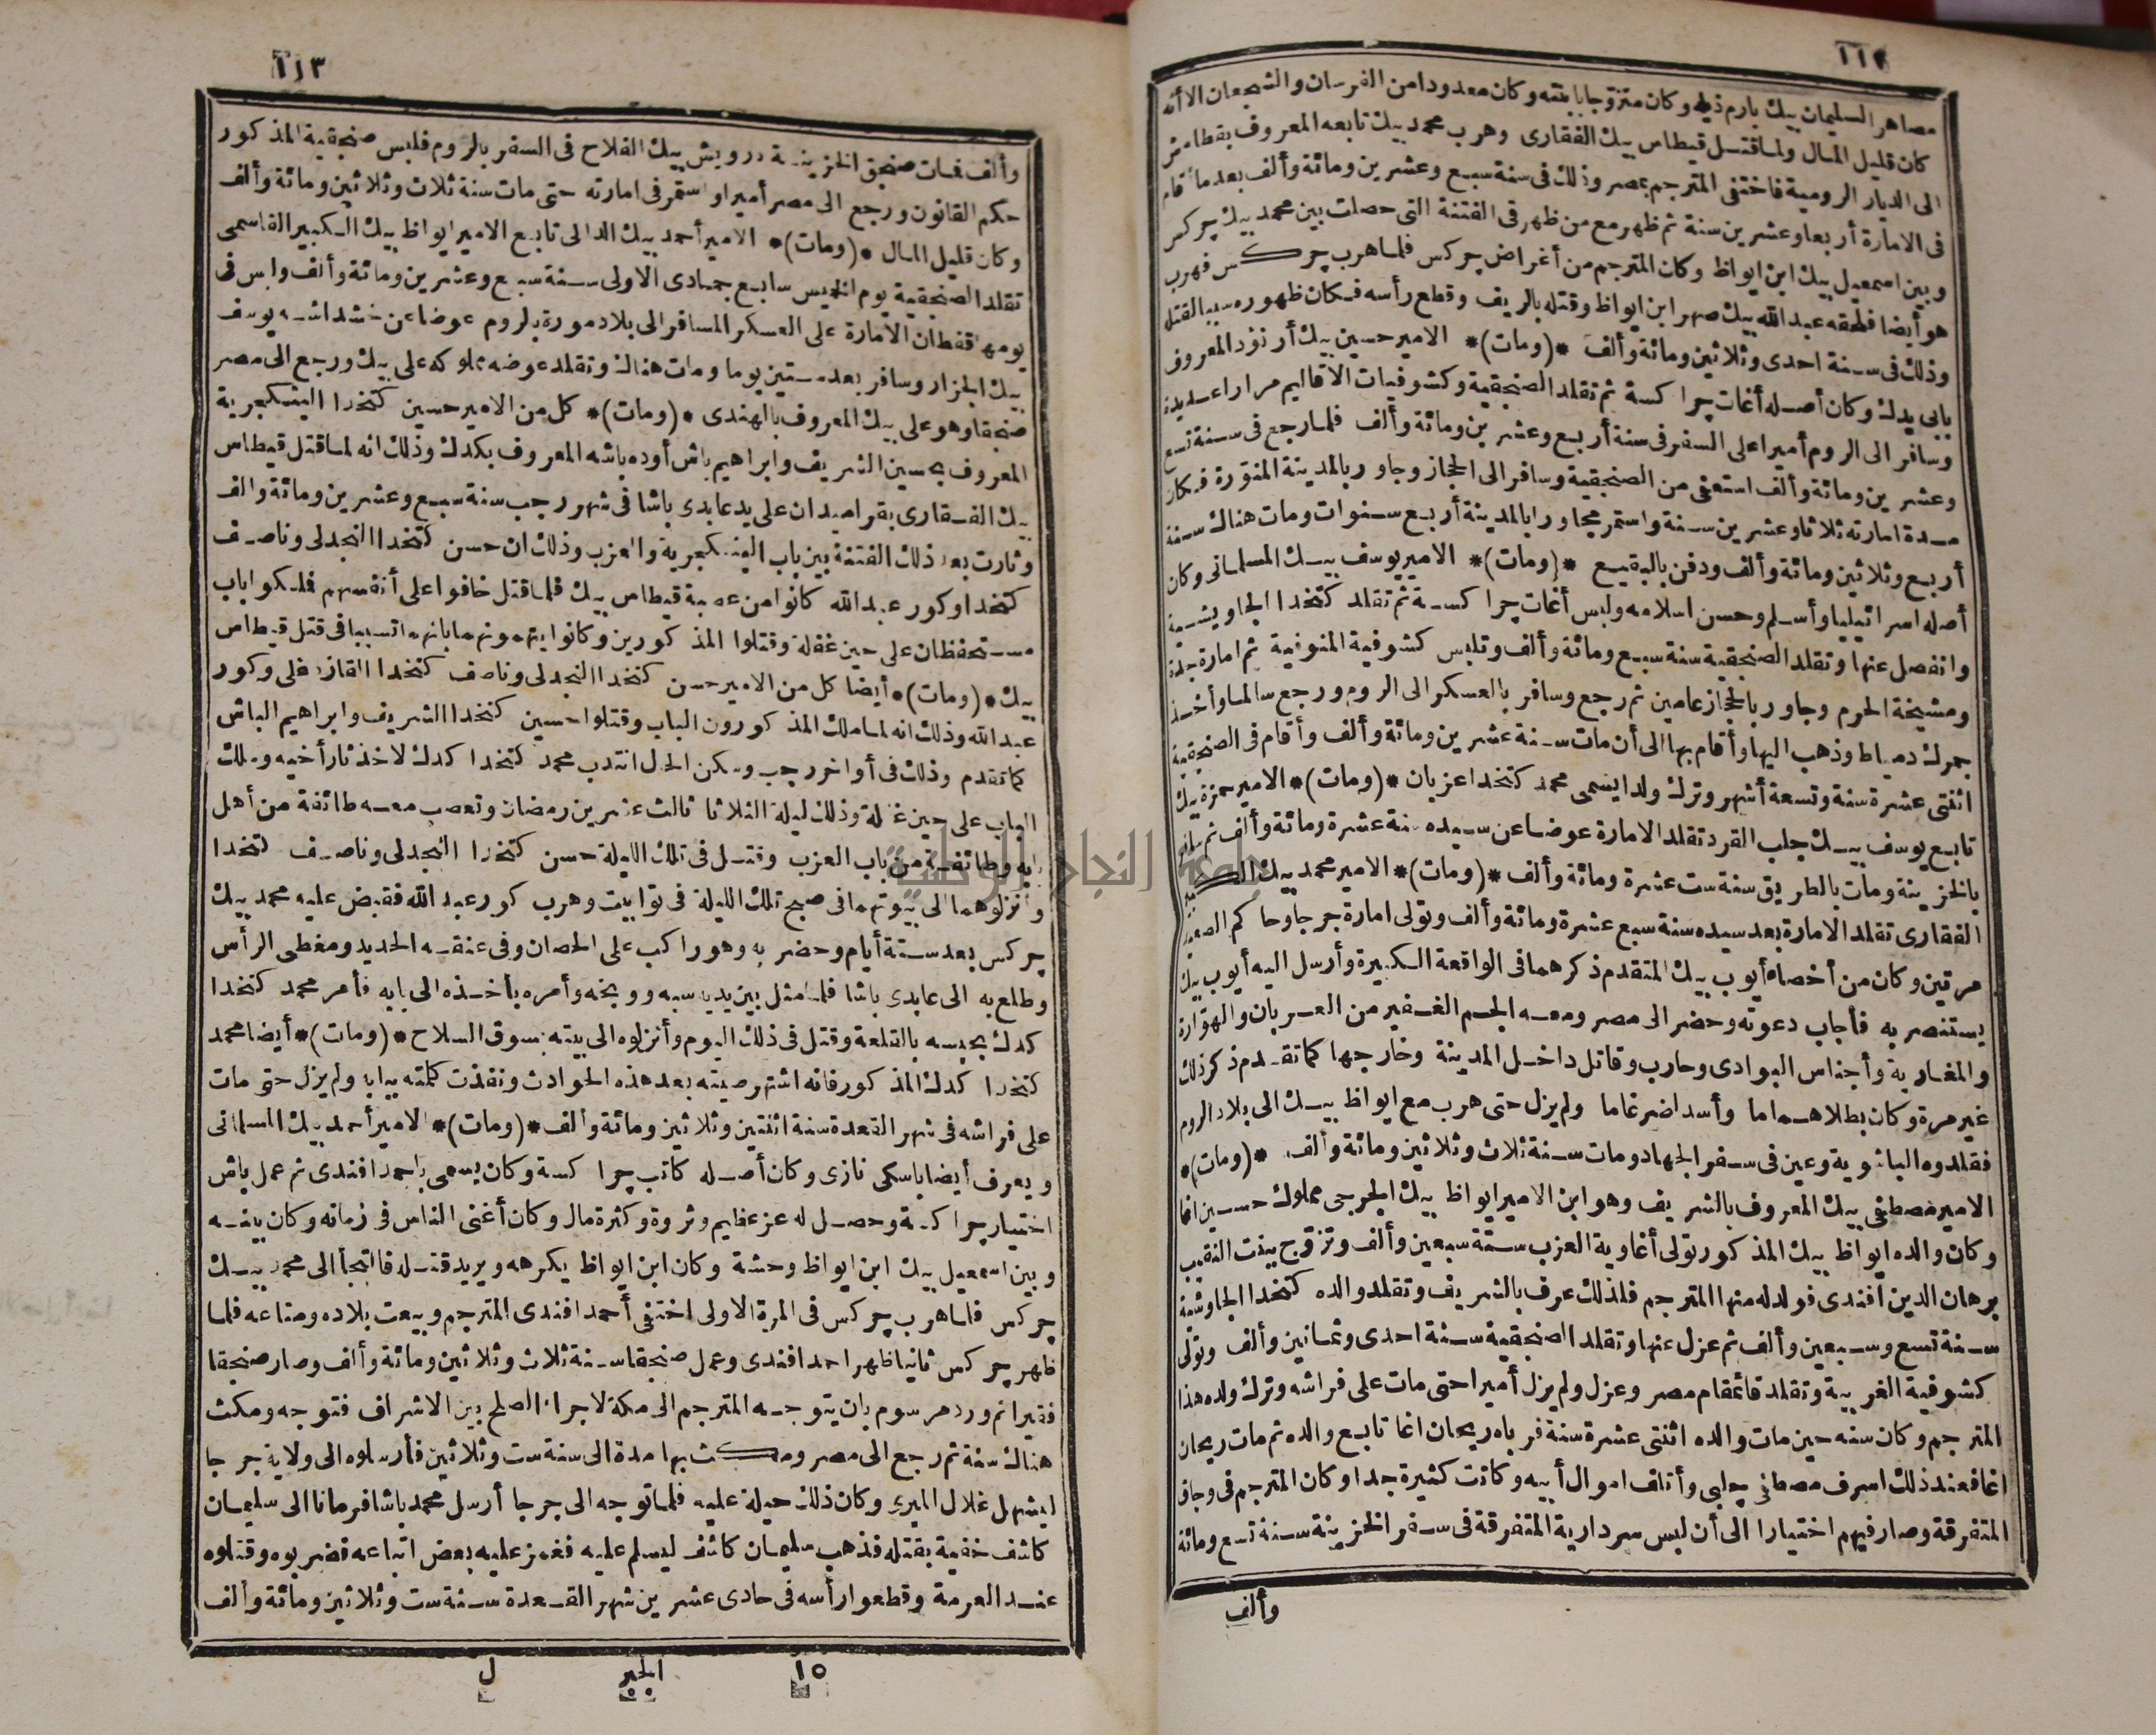 ١١٢
مصاهر السليمان بيك بارم ذيله وكان متزوجا بابنته وكان معدودا من الفرسان والشجعان الا أنه
كان قليل المال ولما قتل قيطاس بيك الفقارى وهرب محمد بيك تابعه المعروف بقطامش
الى الديار الرومية فاختفى المترجم بمصر وذلك فى سنة سبع وعشرين ومائة وألف بعد ما أقام
فى الامارة أربعا وعشرين سنة ثم ظهر مع من ظهر فى الفتنة التى حصلت بين محمد بيك چركس
وبين اسمعيل بيك ابن ايواظ وكان المترجم من أغراض چركس فلما هرب چركس فهرب
هو أيضا فلحقه عبد الله بيك صهر ابن ايواظ وقتله بالريف وقطع رأسه فكان ظهوره سببا لقتله
وذلك فى سنة احدى وثلاثين ومائة وألف *(ومات)* الامير حسين بيك أرنؤد المعروف
بابى يدك وكان أصله أغات چراكسة ثم تقلد الصنجقية وكشوفيات الاقاليم مرارا عديدة
وسافر الى الروم أميرا على السفر فى سنة أربع وعشرين ومائة وألف فلما رجع فى سنة تسع
وعشرين ومائة وألف استعفى من الصنجقية وسافر الى الحجاز وجاور بالمدينة المنورة فكان
مدة امارته ثلاثا وعشرين سنة واستمر مجاورا بالمدينة أربع سنوات ومات هناك سنة
أربع وثلاثين ومائة وألف ودفن بالبقيع *(ومات)* الامير يوسف بيك المسلمانى وكان
أصله اسرائيليا وأسلم وحسن اسلامه ولبس أغات چراكسة ثم تقلد كتخدا الجاويشية
وانفصل عنها وتقلد الصنجقية سنة سبع ومائة وألف وتلبس كشوفية المنوفية ثم امارة جدة
ومشيخة الحرم وجاور بالحجاز عامين ثم رجع وسافر بالعسكر الى الروم ورجع سالما وأخذ
جمرك دمياط وذهب اليها وأقام بها الى أن مات سنة عشرين ومائة وألف وأقام فى الصنجقية
اثنتى عشرة سنة وتسعة أشهر وترك ولدا يسمى محمد كتخدا عزبان *(ومات)* الامير حمزة بيك
تابع يوسف بيك جلب القرد تقلد الامارة عوضا عن سيده سنة عشرة ومائة وألف ثم سافر
بالخزينة ومات بالطريق سنة ست عشرة ومائة وألف *(ومات)* الامير محمد بيك الكبير
الفقارى تقلد الامارة بعد سيده سنة سبع عشرة ومائة وألف وتولى امارة جرجا وحاكم الصعيد
مرتين وكان من أخصاء أيوب بيك المتقدم ذكرهما فى الواقعة الكبيرة وأرسل اليه أيوب بيك
يستنصر به فأجاب دعوته وحضر الى مصر ومعه الجم الغفير من العربان والهوارة
والمغاربة وأجناس البوادى وحارب وقاتل داخل المدينة وخارجها كما تقدم ذكر ذلك
غير مرة وكان بطلا هماما وأسدا ضرغاما ولم يزل حتى هرب مع ايواظ بيك الى بلاد الروم
فقلدوه الباشوية وعين فى سفر الجهاد ومات سنة ثلاث وثلاثين ومائة وألف *(ومات)*
الامير مصطفى بيك المعروف بالشريف وهو ابن الامير ايواظ بيك الجرجى مملوك حسين اغا
وكان والده ايواظ بيك المذكور تولى أغاوية العزب سنة سبعين وألف وتزوج ببنت النقيب
برهان الدين افندى فولد له منها المترجم فلذلك عرف بالشريف وتقلد والده كتخدا الجاوشية
سنة تسع وسبعين وألف ثم عزل عنها وتقلد الصنجقية سنة احدى وثمانين وألف وتولى
كشوفية الغربية وتقلد قائمقام مصر وعزل ولم يزل أميرا حتى مات على فراشه وترك ولده هذا
المترجم وكان سنه حين مات والده اثنتى عشرة سنة فرباه ريحان اغا تابع والده ثم مات ريحان
اغا فعند ذلك اسرف مصطفى چلبى وأتلف اموال أبيه وكانت كثيرة جدا وكان المترجم فى وجاق
المتفرقة وصار فيهم اختيارا الى أن لبس سردارية المتفرقة فى سفر الخزينة سنة تسع ومائة
وألف
١١٣
وألف فمات صنجق الخزينة درويش بيك الفلاح فى السفر بالروم فلبس صنجقية المذكور
حكم القانون ورجع الى مصر أميرا واستمر فى امارته حتى مات سنة ثلاث وثلاثين ومائة وألف
وكان قليل المال *(ومات)* الامير أحمد بيك الدالى تابع الامير ايواظ بيك الكبير القاسمى
تقلد الصنجقية يوم الخميس سابع جمادى الاولى سنة سبع وعشرين ومائة وألف ولبس فى
يومها قفطان الامارة على العسكر المسافر الى بلاد مورة بالروم عوضا عن خشداشه يوسف
بيك الجزار وسافر بعد ستين يوما ومات هناك وتقلد عوضه مملوكه على بيك ورجع الى مصر
صنجقا وهو على بيك المعروف بالهندى *(ومات)* كل من الامير حسين كتخدا الينكجرية
المعروف بحسين الشريف وابراهيم باش أوده باشه المعروف بكدك وذلك انه لما قتل قيطاس
بيك الفقارى بقراميدان على يد عابدى باشا فى شهر رجب سنة سبع وعشرين ومائة والف
وثارت بعد ذلك الفتنة بين باب الينكجرية والعزب وذلك ان حسن كتخدا النجدلى وناصف
كتخدا وكور عبد الله كانوا من عصبة قيطاس بيك فلما قتل خافوا على أنفسهم فملكوا باب
مستحفظان على حين غفلة وقتلوا المذكورين وكانوا يتهمونهما بانهما تسببا فى قتل قيطاس
بيك *(ومات)* أيضا كل من الامير حسن كتخدا النجدلى وناصف كتخدا القازدغلى وكور
عبد الله وذلك انه لما ملك المذكورون الباب وقتلوا حسين كتخدا الشريف وابراهيم الباش
كما تقدم وذلك فى أواخر رجب وسكن الحال انتدب محمد كتخدا كدك لاخذ ثار أخيه وملك
الباب على حين غفلة وذلك ليلة الثلاثا ثالث عشرين رمضان وتعصب معه طائفة من أهل
بابه وطائفة من باب العزب وقتل فى تلك الليلة حسن كتخدا النجدلى وناصف كتخدا
وأنزلوهما الى بيوتهما فى صبح تلك الليلة فى توابيت وهرب كور عبد الله فقبض عليه محمد بيك
چركس بعد ستة أيام وحضر به وهو راكب على الحصان وفى عنقه الحديد ومغطى الرأس
وطلع به الى عابدى باشا فلما مثل بين يديه سبه ووبخه وأمره بأخذه الى بابه فأمر محمد كتخدا
كدك بحبسه بالقلعة وقتل فى ذلك اليوم وأنزلوه الى بيته بسوق السلاح *(ومات)* أيضا محمد
كتخدا كدك المذكور فانه اشتهر صيته بعد هذه الحوادث ونفذت كلمته ببابه ولم يزل حتى مات
على فراشه فى شهر القعدة سنة اثنتين وثلاثين ومائة وألف *(ومات)* الامير أحمد بيك المسلمانى
ويعرف أيضا باسكى نازى وكان أصله كاتب چراكسة وكان يسمى باحمد افندى ثم عمل باش
اختيار چراكسة وحصل له عز عظيم وثروة وكثرة مال وكان أغنى الناس فى زمانه وكان بينه
وبين اسمعيل بيك ابن ايواظ وحشة وكان ابن ايواظ يكرهه ويريد قتله فالتجأ الى محمد بيك
چركس فلما هرب چركس فى المرة الاولى اختفى أحمد افندى المترجم وبيعت بلاده ومتاعه فلما
ظهر چركس ثانيا ظهر احمد افندى وعمل صنجقا سنة ثلاث وثلاثين ومائة وألف وصار صنجقا
فقيرا ثم ورد مرسوم بان يتوجه المترجم الى مكة لاجراء الصلح بين الاشراف فتوجه ومكث
هناك سنة ثم رجع الى مصر ومكث بها مدة الى سنة ست وثلاثين فأرسلوه الى ولاية جرجا
ليشهل غلال الميرى وكان ذلك حيلة عليه فلما توجه الى جرجا أرسل محمد باشا فرمانا الى سليمان
كاشف خفية بقتله فذهب سليمان كاشف ليسلم عليه فغمز عليه بعض اتباعه فضربوه وقتلوه
عند العرمة وقطعوا رأسه فى حادى عشرين شهر القعدة سنة ست وثلاثين ومائة وألف
١٥ الجبر ل
جامعة النجاح الوطنية